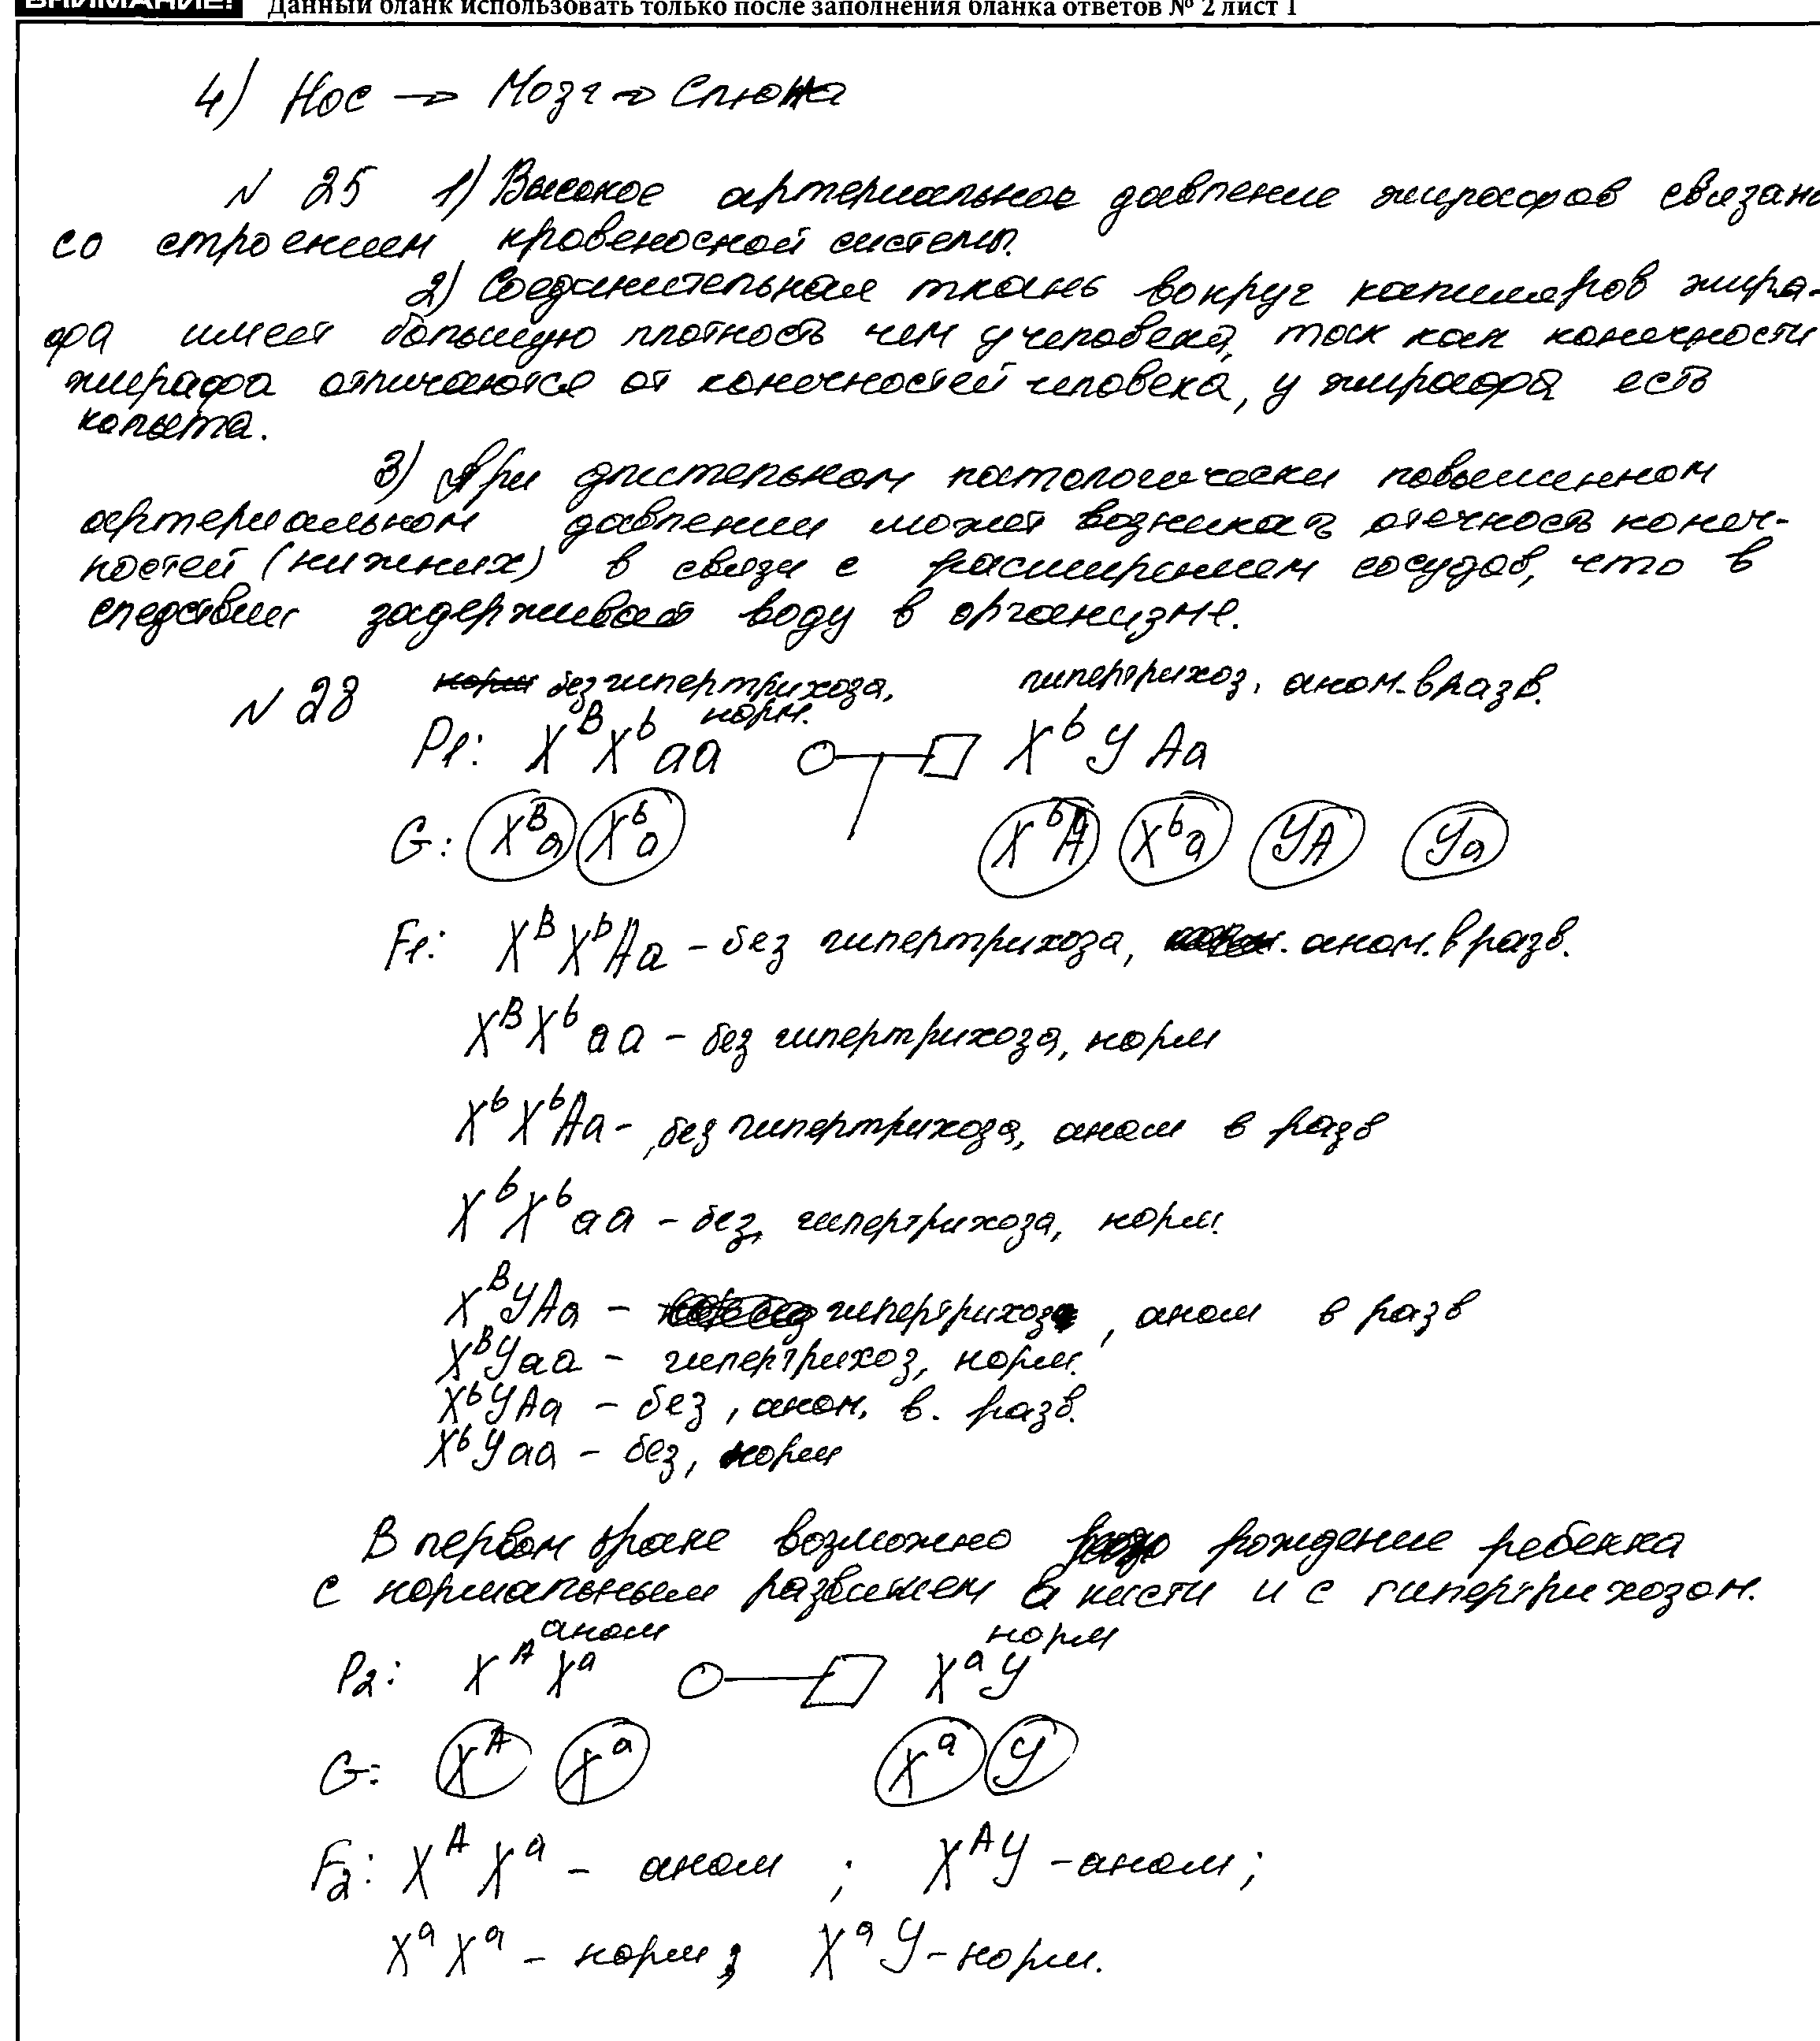 ВНИМАНИЕ! Данный бланк использовать только после заполнения бланка ответов № 2 лист 1
4) Нос → Мозг → Слюна
N 25 1) Высокое артериальное давление жирафов связано
со строением кровеносной системы.
2) Соединительная ткань вокруг капиляров жира-
фа имеет большую плотность чем у человека, так как конечности
жирафа отличаются от конечностей человека, у жирафа есть
копыта.
3) При длительном патологически повышенном
артериальном давлении может возникать отечность конеч-
ностей (нижних) в связи с расширением сосудов, что в
следствии задерживает воду в организме.
N 28 норм без гипертрихоза, норм. гипертрихоз, аном. в разв.
P1: X^B X^b aa ○—□ X^b Y Aa
G: X^B a X^b a X^b A X^b a YA Ya
F1: X^B X^b Aa – без гипертрихоза, аном. в разв.
X^B X^b aa – без гипертрихоза, норм
X^b X^b Aa – без гипертрихоза, аном в разв
X^b X^b aa – без, гипертрихоза, норм.
X^B Y Aa – гипертрихоз, аном в разв
X^B Y aa – гипертрихоз, норм.
X^b Y Aa – без, аном. в. разв.
X^b Y aa – без, норм
В первом браке возможно рождение ребенка
с нормальным развитием кисти и с гипертрихозом.
аном норм
P2: X^A X^a ○—□ X^a Y
G: X^A X^a X^a Y
F2: X^A X^a – аном ; X^A Y – аном;
X^a X^a – норм; X^a Y – норм.